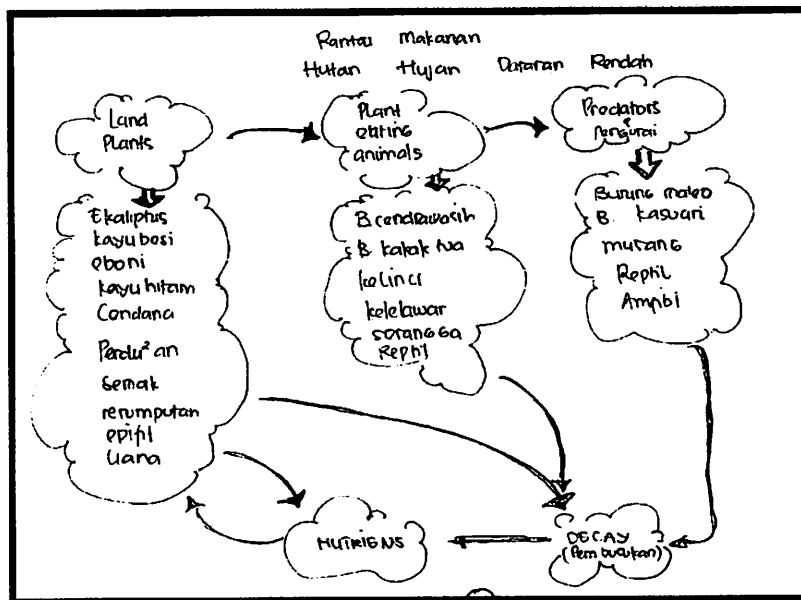 Rantai Makanan
Hutan Hujan Dataran Rendah
Land
Plants
Plant
eating
animals
Predators
&
Pengurai
Ekaliptus
kayu besi
eboni
kayu hitam
Cendana
Perdu² an
Semak
rerumputan
epifil
liana
B cendrawasih
B kakak tua
kelinci
kelelawar
serangga
Reptil
Burung maleo
B. kasuari
musang
Reptil
Ampibi
NUTRIENS
DECAY
(Pembusukan)